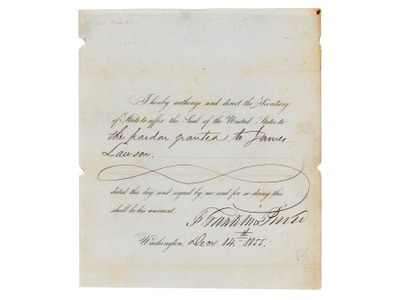 I hereby authorize and direct the Secretary
of State to affix the Seal of the United States to
the pardon granted to James
Lawson.
dated this day, and signed by me and for so doing this
shall be his warrant.
Franklin Pierce
Washington, Decr 14th 1855.